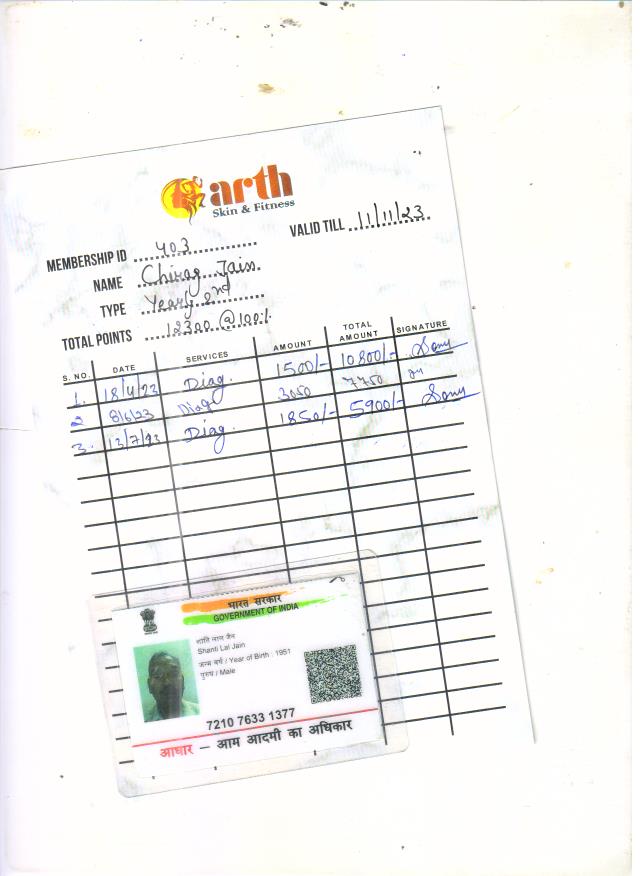 arth
Skin & Fitness
VALID TILL 11/11/23
MEMBERSHIP ID 403
NAME Chirag Jain
TYPE Yearly 2nd
TOTAL POINTS 12300 @100%
S. NO. DATE SERVICES AMOUNT TOTAL AMOUNT SIGNATURE
1. 18/4/23 Diag. 1500/- 10800/- Sonu
2 8/6/23 Diag 3050 7750
3. 13/7/23 Diag. 1850/- 5900/- Sonu
भारत सरकार
GOVERNMENT OF INDIA
शांति लाल जैन
Shanti Lal Jain
जन्म वर्ष / Year of Birth : 1951
पुरुष / Male
7210 7633 1377
आधार – आम आदमी का अधिकार